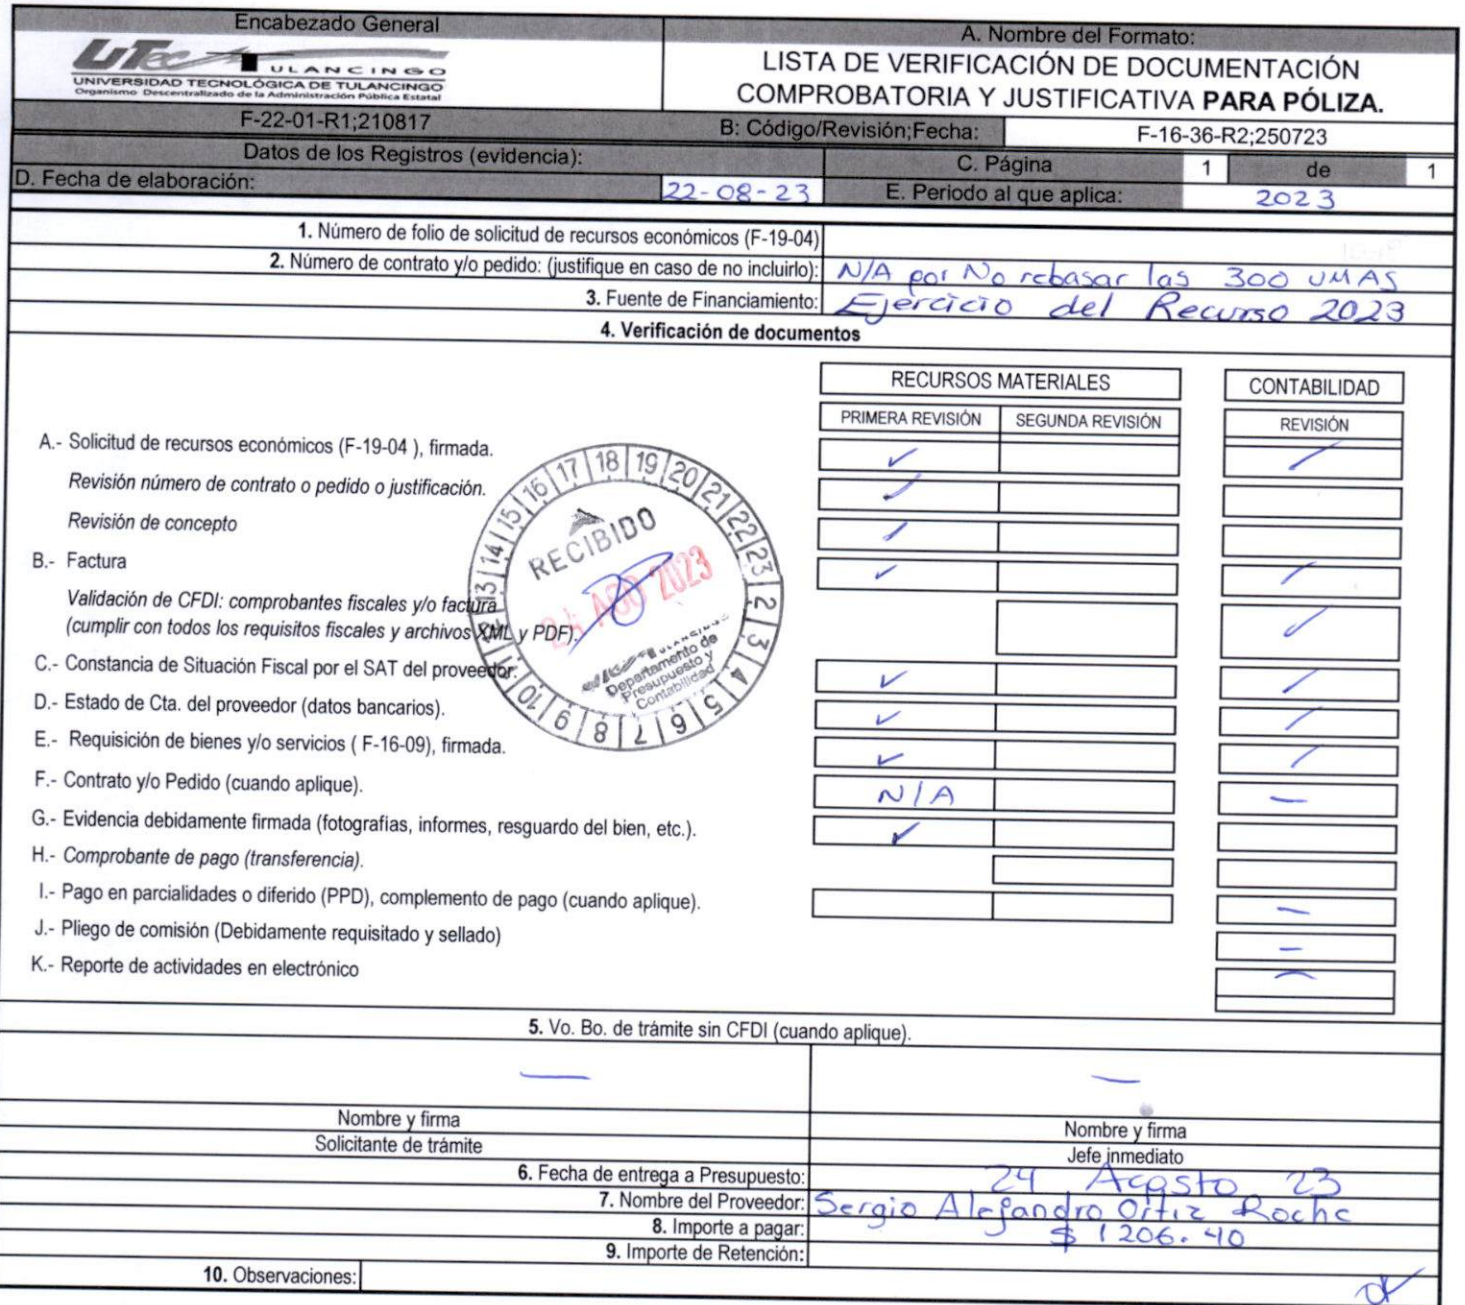 Encabezado General
A. Nombre del Formato:
UTec TULANCINGO
UNIVERSIDAD TECNOLÓGICA DE TULANCINGO
Organismo Descentralizado de la Administración Pública Estatal
LISTA DE VERIFICACIÓN DE DOCUMENTACIÓN
COMPROBATORIA Y JUSTIFICATIVA PARA PÓLIZA.
F-22-01-R1;210817
B: Código/Revisión;Fecha: F-16-36-R2;250723
Datos de los Registros (evidencia):
C. Página 1 de 1
D. Fecha de elaboración: 22-08-23
E. Periodo al que aplica: 2023
1. Número de folio de solicitud de recursos económicos (F-19-04)
2. Número de contrato y/o pedido: (justifique en caso de no incluirlo): N/A por No rebasar las 300 UMAS
3. Fuente de Financiamiento: Ejercicio del Recurso 2023
4. Verificación de documentos
RECURSOS MATERIALES
CONTABILIDAD
PRIMERA REVISIÓN SEGUNDA REVISIÓN
REVISIÓN
A.- Solicitud de recursos económicos (F-19-04 ), firmada.
Revisión número de contrato o pedido o justificación.
Revisión de concepto
B.- Factura
Validación de CFDI: comprobantes fiscales y/o factura
(cumplir con todos los requisitos fiscales y archivos XML y PDF).
C.- Constancia de Situación Fiscal por el SAT del proveedor.
D.- Estado de Cta. del proveedor (datos bancarios).
E.- Requisición de bienes y/o servicios ( F-16-09), firmada.
F.- Contrato y/o Pedido (cuando aplique). N/A
G.- Evidencia debidamente firmada (fotografias, informes, resguardo del bien, etc.).
H.- Comprobante de pago (transferencia).
I.- Pago en parcialidades o diferido (PPD), complemento de pago (cuando aplique).
J.- Pliego de comisión (Debidamente requisitado y sellado)
K.- Reporte de actividades en electrónico
RECIBIDO
24 AGO 2023
Departamento de
Presupuesto y
Contabilidad
5. Vo. Bo. de trámite sin CFDI (cuando aplique).
Nombre y firma
Solicitante de trámite
Nombre y firma
Jefe inmediato
6. Fecha de entrega a Presupuesto: 24 Agosto 23
7. Nombre del Proveedor: Sergio Alejandro Ortiz Roche
8. Importe a pagar: $ 1206.40
9. Importe de Retención:
10. Observaciones: